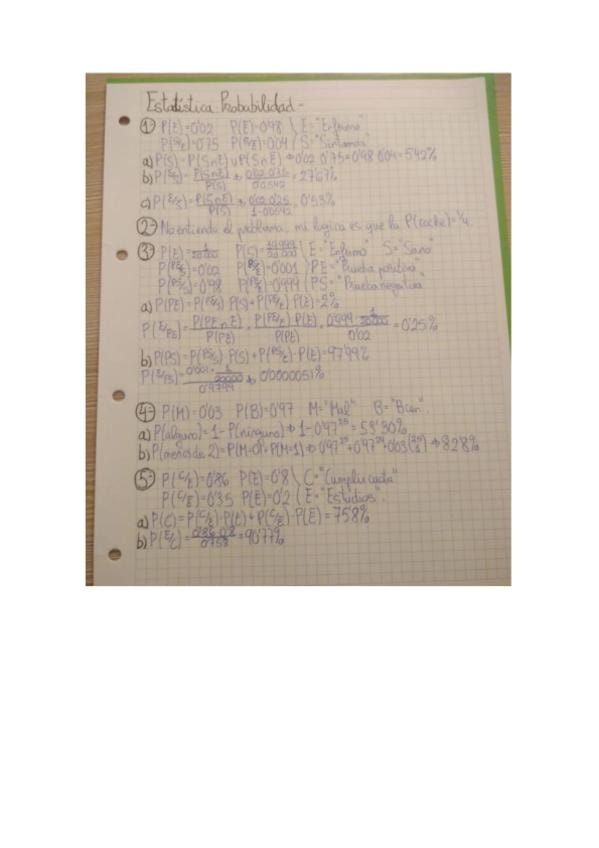 Estatística Probabilidad -
1- P(E)=0'02 P(Ē)=0'98 \ E="Enfermo"
P(S/E)=0'75 P(S/Ē)=0'04 / S="Síntomas"
a) P(S)=P(S∩E)∪P(S∩Ē)→0'02·0'75+0'98·0'04=5'42%
b) P(E/S)=P(S∩E)/P(S)→0'02·0'75/0'0542=27'67%
c) P(E/S̄)=P(S̄∩E)/P(S̄)→0'02·0'25/1-0'0542=0'53%
2- No entiendo el problema, mi logica es que la P(coche)=1/4.
3- P(E)=1/20.000 P(S)=19.999/20.000 \ E="Enfermo" S="Sano"
P(PE/S)=0'02 P(PS/E)=0'001 } PE="Prueba positiva"
P(PS/S)=0'98 P(PE/E)=0'999 / PS="Prueba negativa"
a) P(PE)=P(PE/S)·P(S)+P(PE/E)·P(E)=2%
P(E/PE)=P(PE∩E)/P(PE)=P(PE/E)·P(E)/P(PE)=0'999·1/20.000/0'02=0'25%
b) P(PS)=P(PS/S)·P(S)+P(PS/E)·P(E)=97'99%
P(E/PS)=0'001·1/20000/0'9799→0'0000051%
4- P(M)=0'03 P(B)=0'97 M="Mal" B="Bien".
a) P(alguno)=1-P(ninguno)→1-0'97²⁵=53'30%
b) P(menos de 2)=P(M=0)+P(M=1)→0'97²⁵+0'97²⁴·0'03(25/1)→82'8%
5- P(C/E)=0'86 P(E)=0'8 \ C="Cumple cuota"
P(C/Ē)=0'35 P(Ē)=0'2 / E="Estudios".
a) P(C)=P(C/E)·P(E)+P(C/Ē)·P(Ē)=75'8%
b) P(E/C)=0'86·0'8/0'758=90'77%